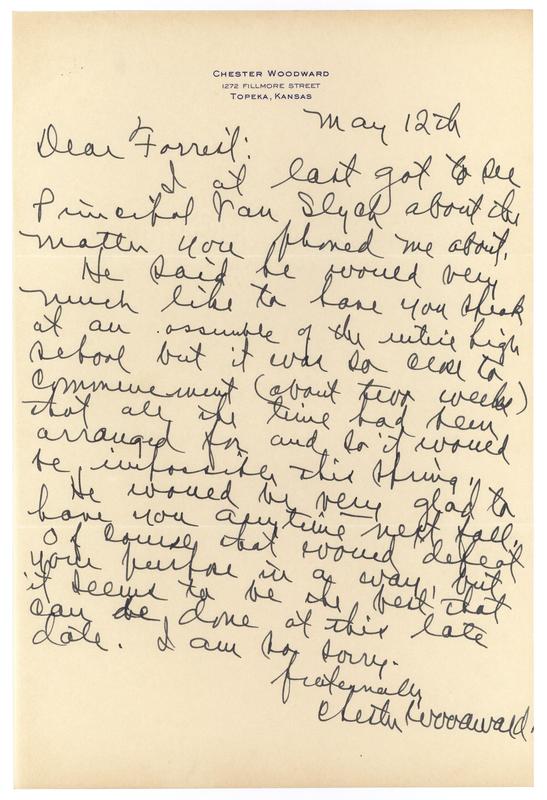 CHESTER WOODWARD
1272 FILLMORE STREET
TOPEKA, KANSAS
May 12th
Dear Forrest:
I at last got to see
Principal Van Slyck about the
matter you phoned me about.
He said he would very
much like to have you speak
at an assemble of the entire high
school but it was so close to
Commencement (about two weeks)
that all the time had been
arranged for and so it would
be impossible this spring.
He would be very glad to
have you anytime next fall.
Of course that would defeat
your purpose in a way, but
it seems to be the best that
can be done at this late
date. I am so sorry.
fraternally
Chester Woodward.